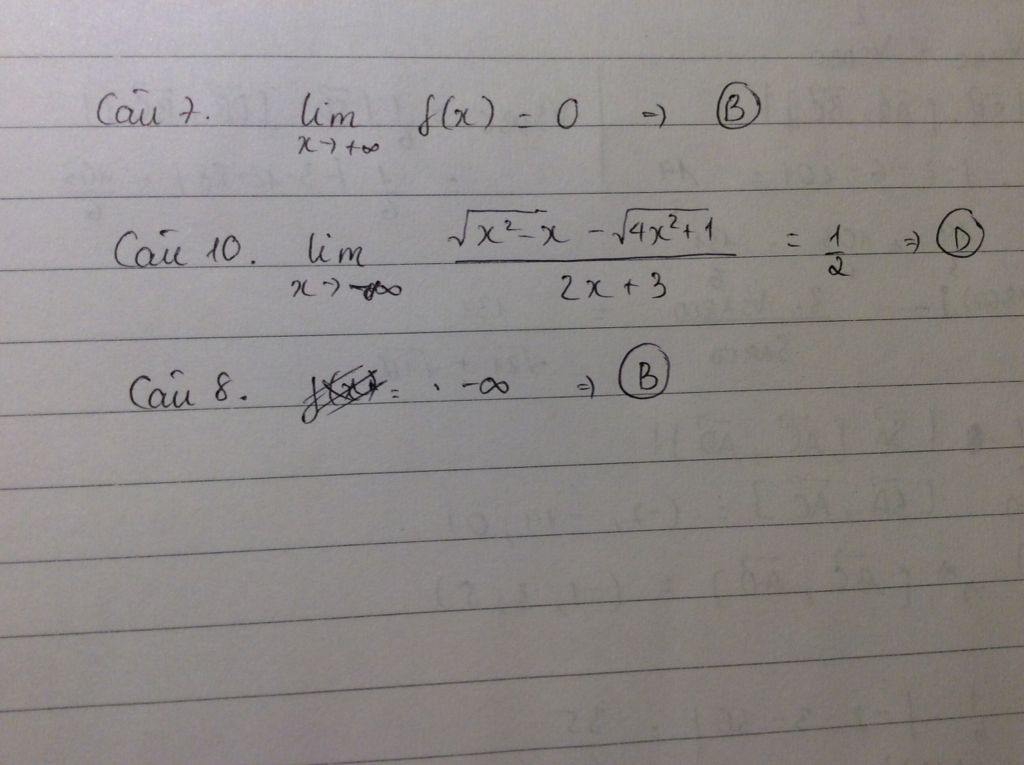 Câu 7. lim x→+∞ f(x) = 0 => B
Câu 10. lim x→-∞ (√(x²-x) - √(4x²+1)) / (2x+3) = 1/2 => D
Câu 8. = . -∞ => B